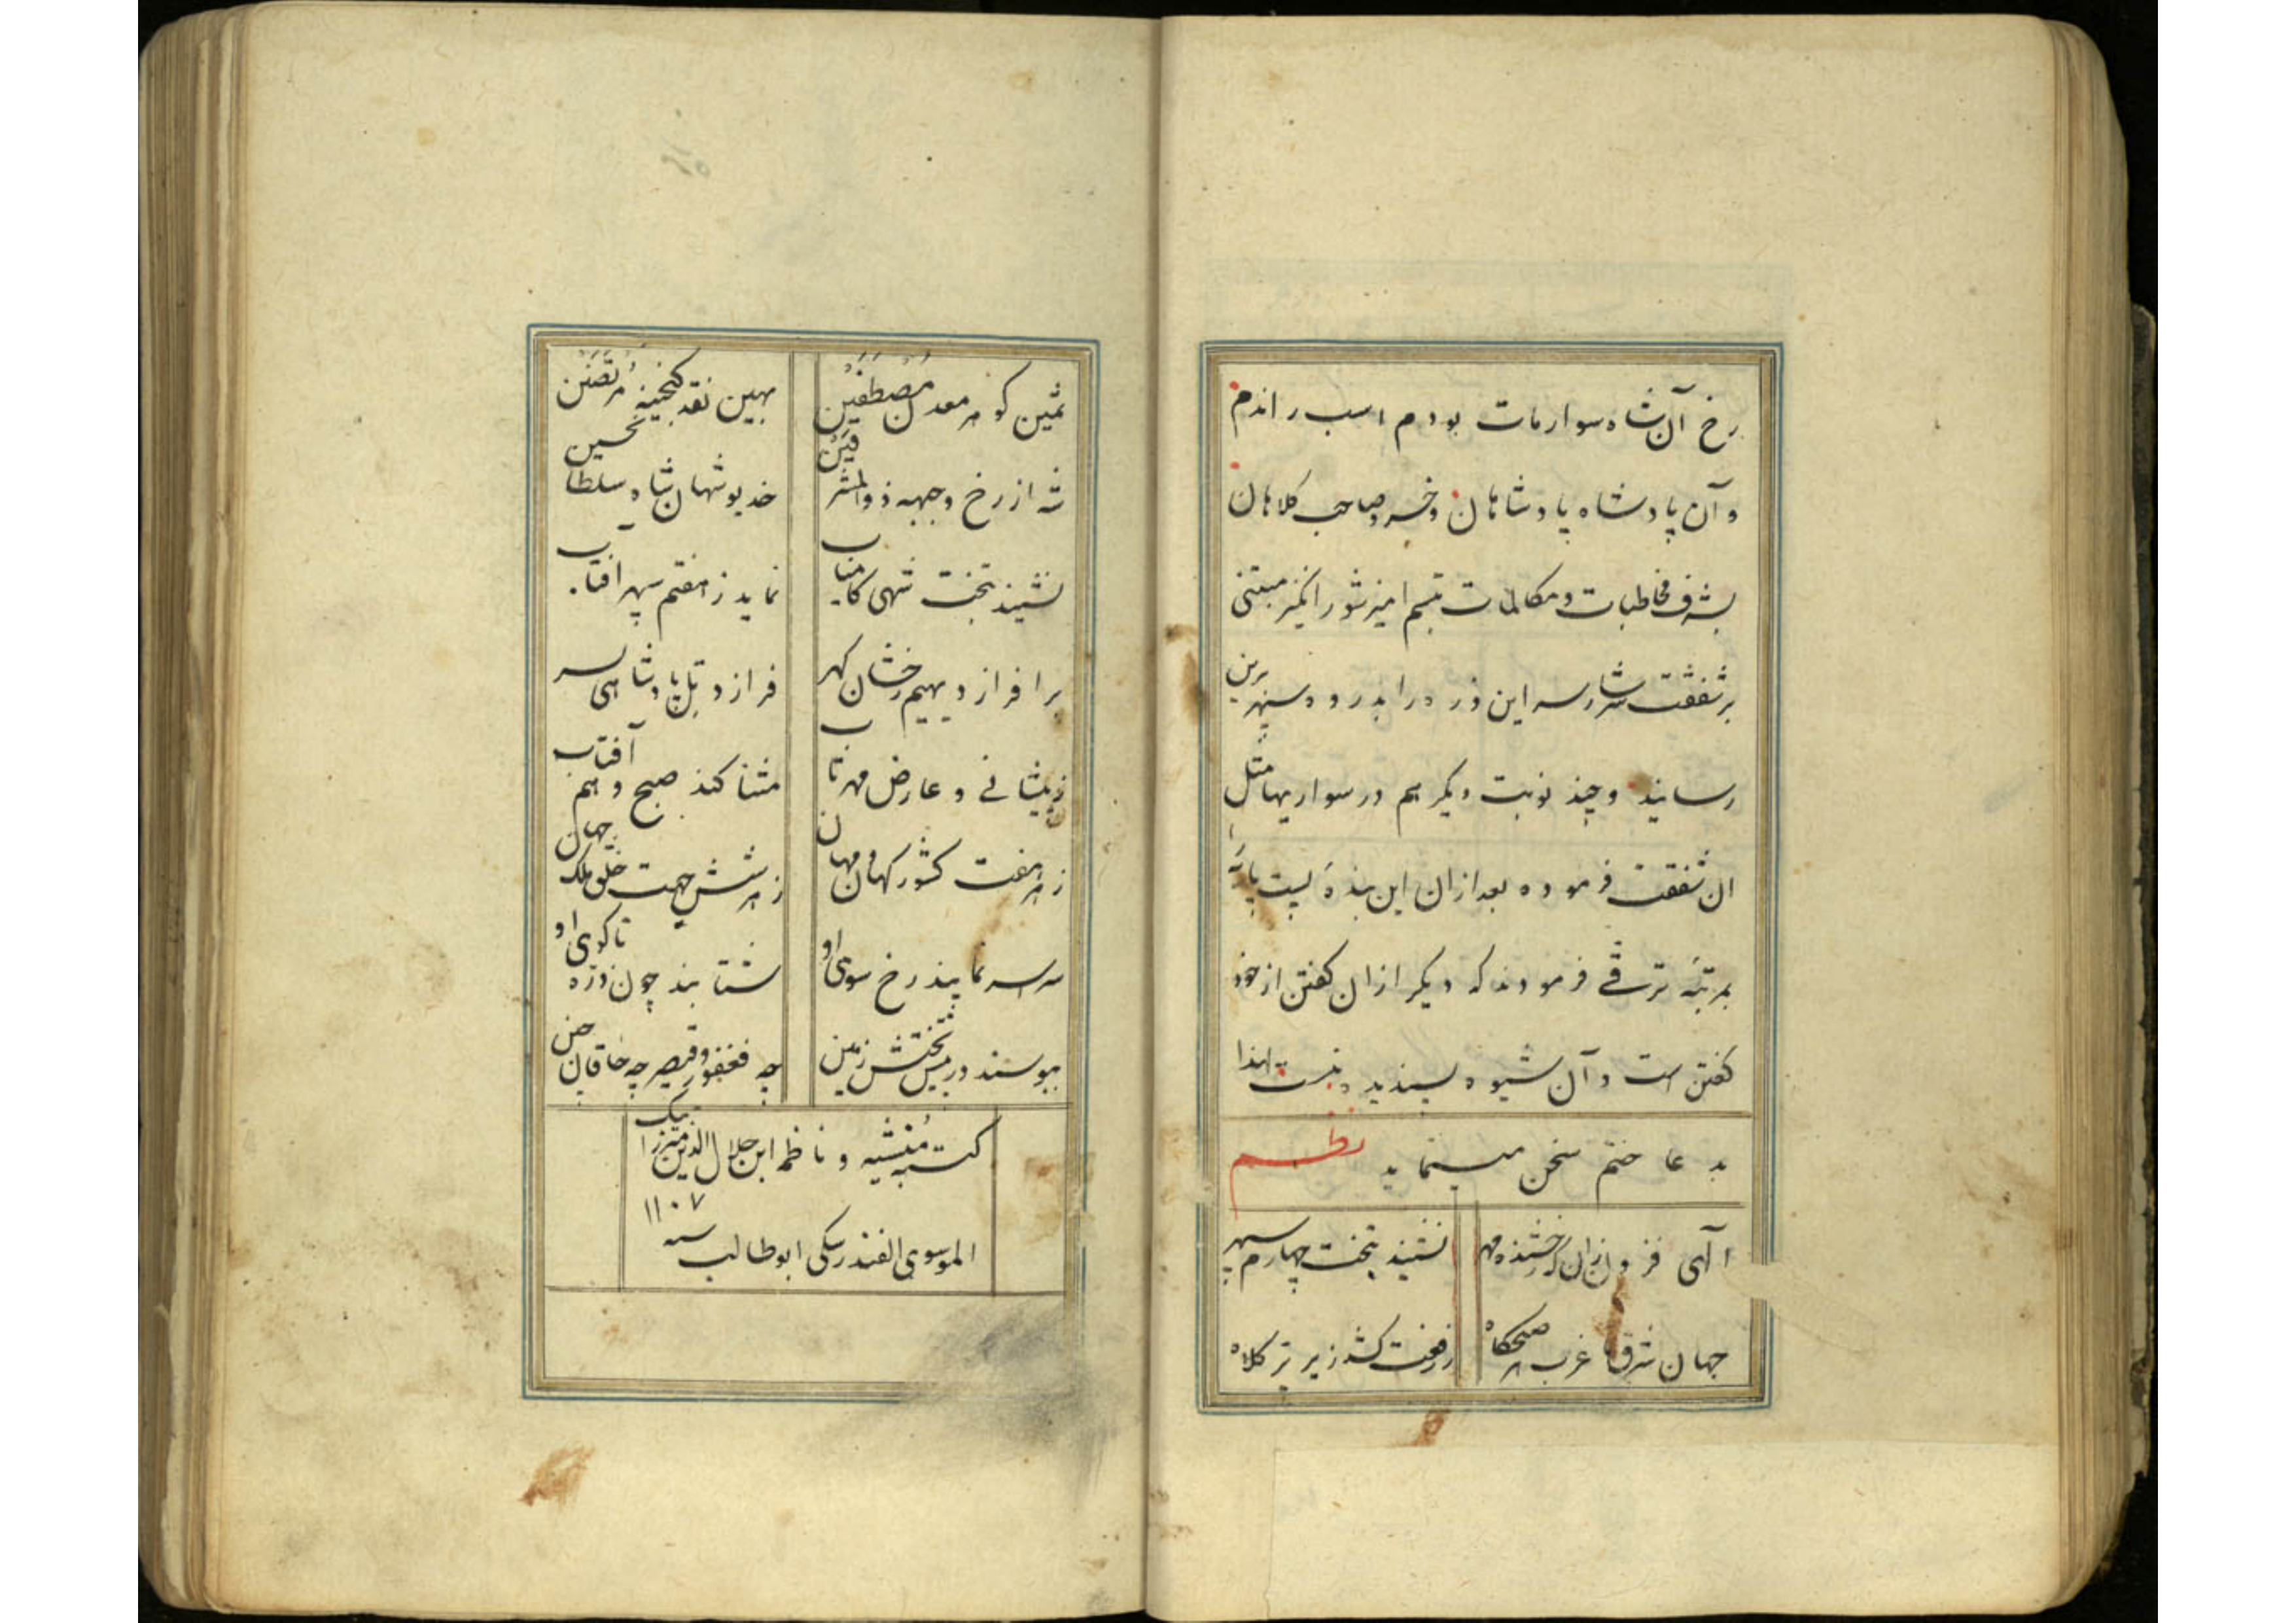 رخ آن شاه سوار مات بودم اسب راندم
و آن پادشاه پادشاهان و خسرو صاحب کلاهان
بشرف مخاطبات و مکالمات تبسم امیز شور انگیز مبتنی
بر شفقت سرشار سر این ذره را بذروه سپهر برین
رسانیند و چند نوبت دیگر هم در سواریها مثل
ان شفقت فرموده بعد ازان این بندهٔ پست پایه را
بمرتبهٔ ترقی فرمودند که دیگر ازان گفتن از خود
گفتن است و آن شیوه پسندیده نیست لهذا
بدعا ختم سخن مینماید نظم
الهی فزون زان که رخشنده مهر نشیند بتخت چهارم سپهر
جهان شرق تا غرب هر صبحگاه ز رفعت کشد زیر پر کلاه
ثمین گوهر معدن مصطفین بهین نقد گنجینهٔ مرتضین
شه از رخ وجهه ذو المشرقین خدیو شهان شاه سلطا نحسین
نشیند بتخت شهی کامیاب نماید ز هفتم سپهر افتاب
بر افرازد یهیم رخشان گهر فرازد بتاج پادشاهی سر
ز پیشانی و عارض مهر تاب مثنا کند صبح و هم آفتاب
ز هر هفت کشور کهان و مهان ز هر شش جهت خلق ملک جهان
سراسر نمایند رخ سوی او شتابند چون ذره تا کوی او
ببوسند در پیش تختش زمین چه فغفور و قیصر چه خاقان چین
کتبه منشیه و ناظمه ابن جلال الدین میرزا بیک
الموسوی الفندرسکی ابوطالب سنه ۱۱۰۷